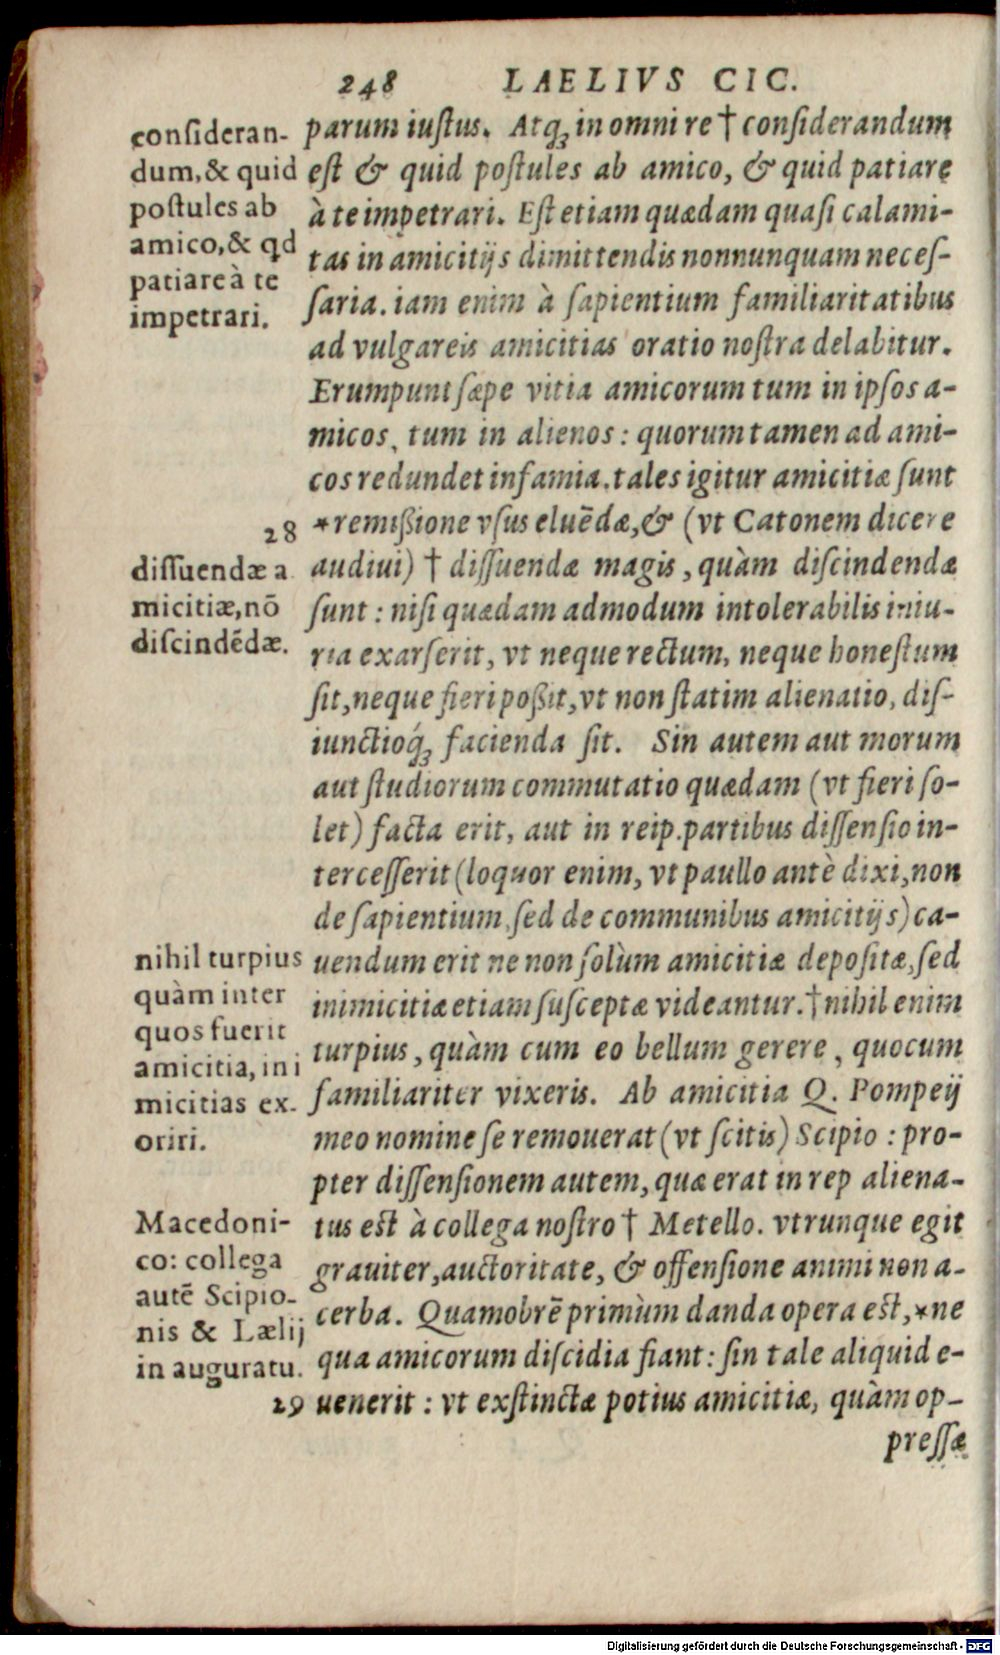 248 LAELIVS CIC.
consideran-
dum, & quid
postules ab
amico, & qd
patiare à te
impetrari.
parum iustus. Atq; in omni re † considerandum
est & quid postules ab amico, & quid patiare
à te impetrari. Est etiam quædam quasi calami-
tas in amicitijs dimittendis nonnunquam neces-
saria. iam enim à sapientium familiaritatibus
ad vulgareis amicitias oratio nostra delabitur.
Erumpunt sæpe vitia amicorum tum in ipsos a-
micos, tum in alienos: quorum tamen ad ami-
cos redundet infamia. tales igitur amicitiæ sunt
28
*remißione vsus eluēdæ, & (vt Catonem dicere
dissuendæ a
micitiæ, nō
discindēdæ.
audiui) † dissuendæ magis, quàm discindendæ
sunt: nisi quædam admodum intolerabilis iniu-
ria exarserit, vt neque rectum, neque honestum
sit, neque fieri poßit, vt non statim alienatio, dis-
iunctioq́; facienda sit. Sin autem aut morum
aut studiorum commutatio quædam (vt fieri so-
let) facta erit, aut in reip. partibus dissensio in-
tercesserit (loquor enim, vt paullo antè dixi, non
de sapientium, sed de communibus amicitijs) ca-
nihil turpius
quàm inter
quos fuerit
amicitia, ini
micitias ex-
oriri.
uendum erit ne non solùm amicitiæ depositæ, sed
inimicitiæ etiam susceptæ videantur. † nihil enim
turpius, quàm cum eo bellum gerere, quocum
familiariter vixeris. Ab amicitia Q. Pompeij
meo nomine se remouerat (vt scitis) Scipio: pro-
pter dissensionem autem, quæ erat in rep aliena-
Macedoni-
co: collega
autē Scipio-
nis & Lælij
in auguratu.
tus est à collega nostro † Metello. vtrunque egit
grauiter, auctoritate, & offensione animi non a-
cerba. Quamobrē primùm danda opera est, *ne
qua amicorum discidia fiant: sin tale aliquid e-
29
uenerit: vt exstinctæ potius amicitiæ, quàm op-
pressæ
Digitalisierung gefördert durch die Deutsche Forschungsgemeinschaft - DFG